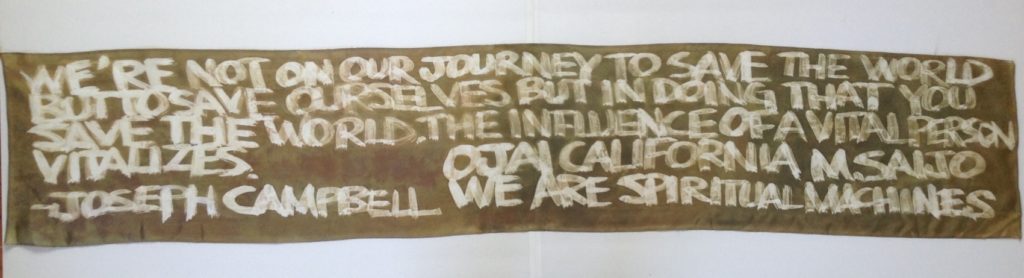 WE'RE NOT ON OUR JOURNEY TO SAVE THE WORLD
BUT TO SAVE OURSELVES BUT IN DOING THAT YOU
SAVE THE WORLD. THE INFLUENCE OF A VITAL PERSON
VITALIZES. OJAI CALIFORNIA M. SAIJO
-JOSEPH CAMPBELL WE ARE SPIRITUAL MACHINES